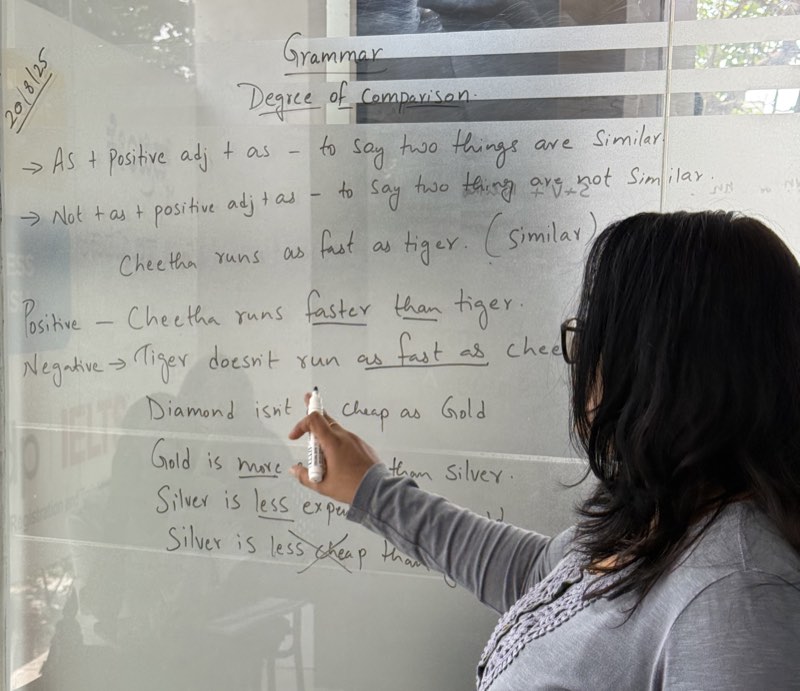 20/8/25
Grammar
Degree of Comparison.
→ As + positive adj + as – to say two things are similar.
→ Not + as + positive adj + as – to say two thing are not similar.
Cheetha runs as fast as tiger. (similar)
Positive – Cheetha runs faster than tiger.
Negative → Tiger doesn't run as fast as chee
Diamond isn't cheap as Gold
Gold is more than silver.
Silver is less expe
Silver is less cheap than
IELTS